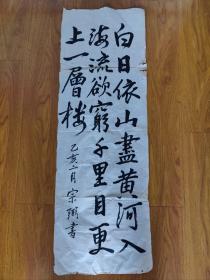 白日依山盡黄河入
海流欲窮千里目更
上一層楼
乙亥二月 宗翔書